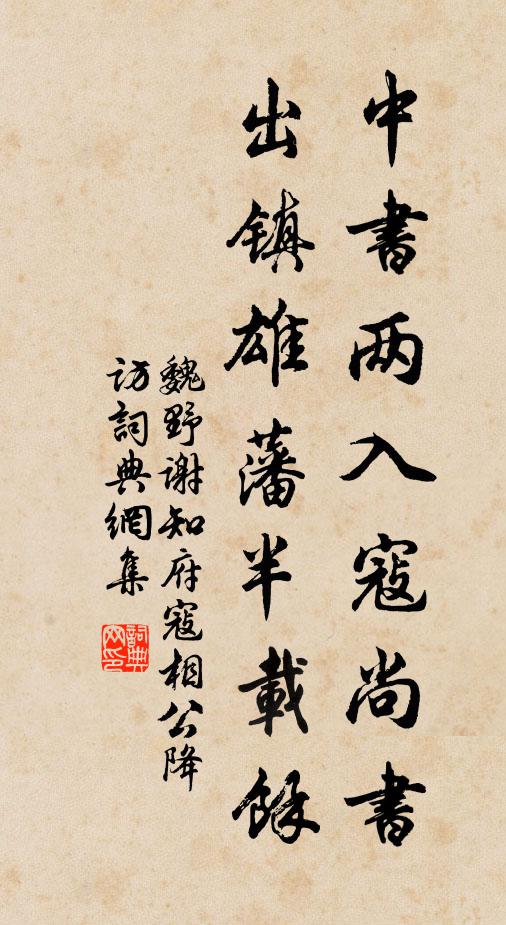 中書两入寇尚書
出鎮雄藩半載餘
魏野谢知府寇相公降
访詞典網集
詞典
网印